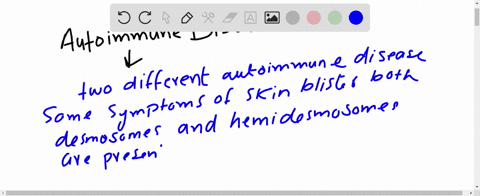 Autoimmune
two different autoimmune disease
Some symptoms of skin blister both
desmosomes and hemidesmosomes
are presen